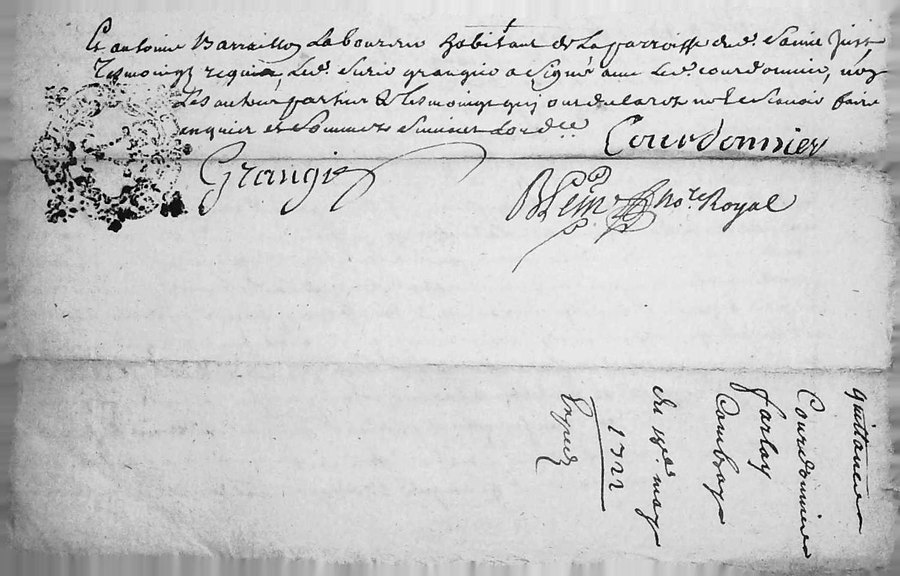 Et antoine Barraillon Laboureur habitant de La parroisse dud. Saint Just
Tesmoingz requis Led. Sieur grangie a Signé avec led. courdonnier, non
Les autres parties & tesmoings qui ont declaré ne le scavoir faire
enquis et Sommés Suivant Lord.ce
Courdonnier
Grangie
No.re Royal
quittance
Courdonnier
farlay
Combray
du 18e may
1722
Exped